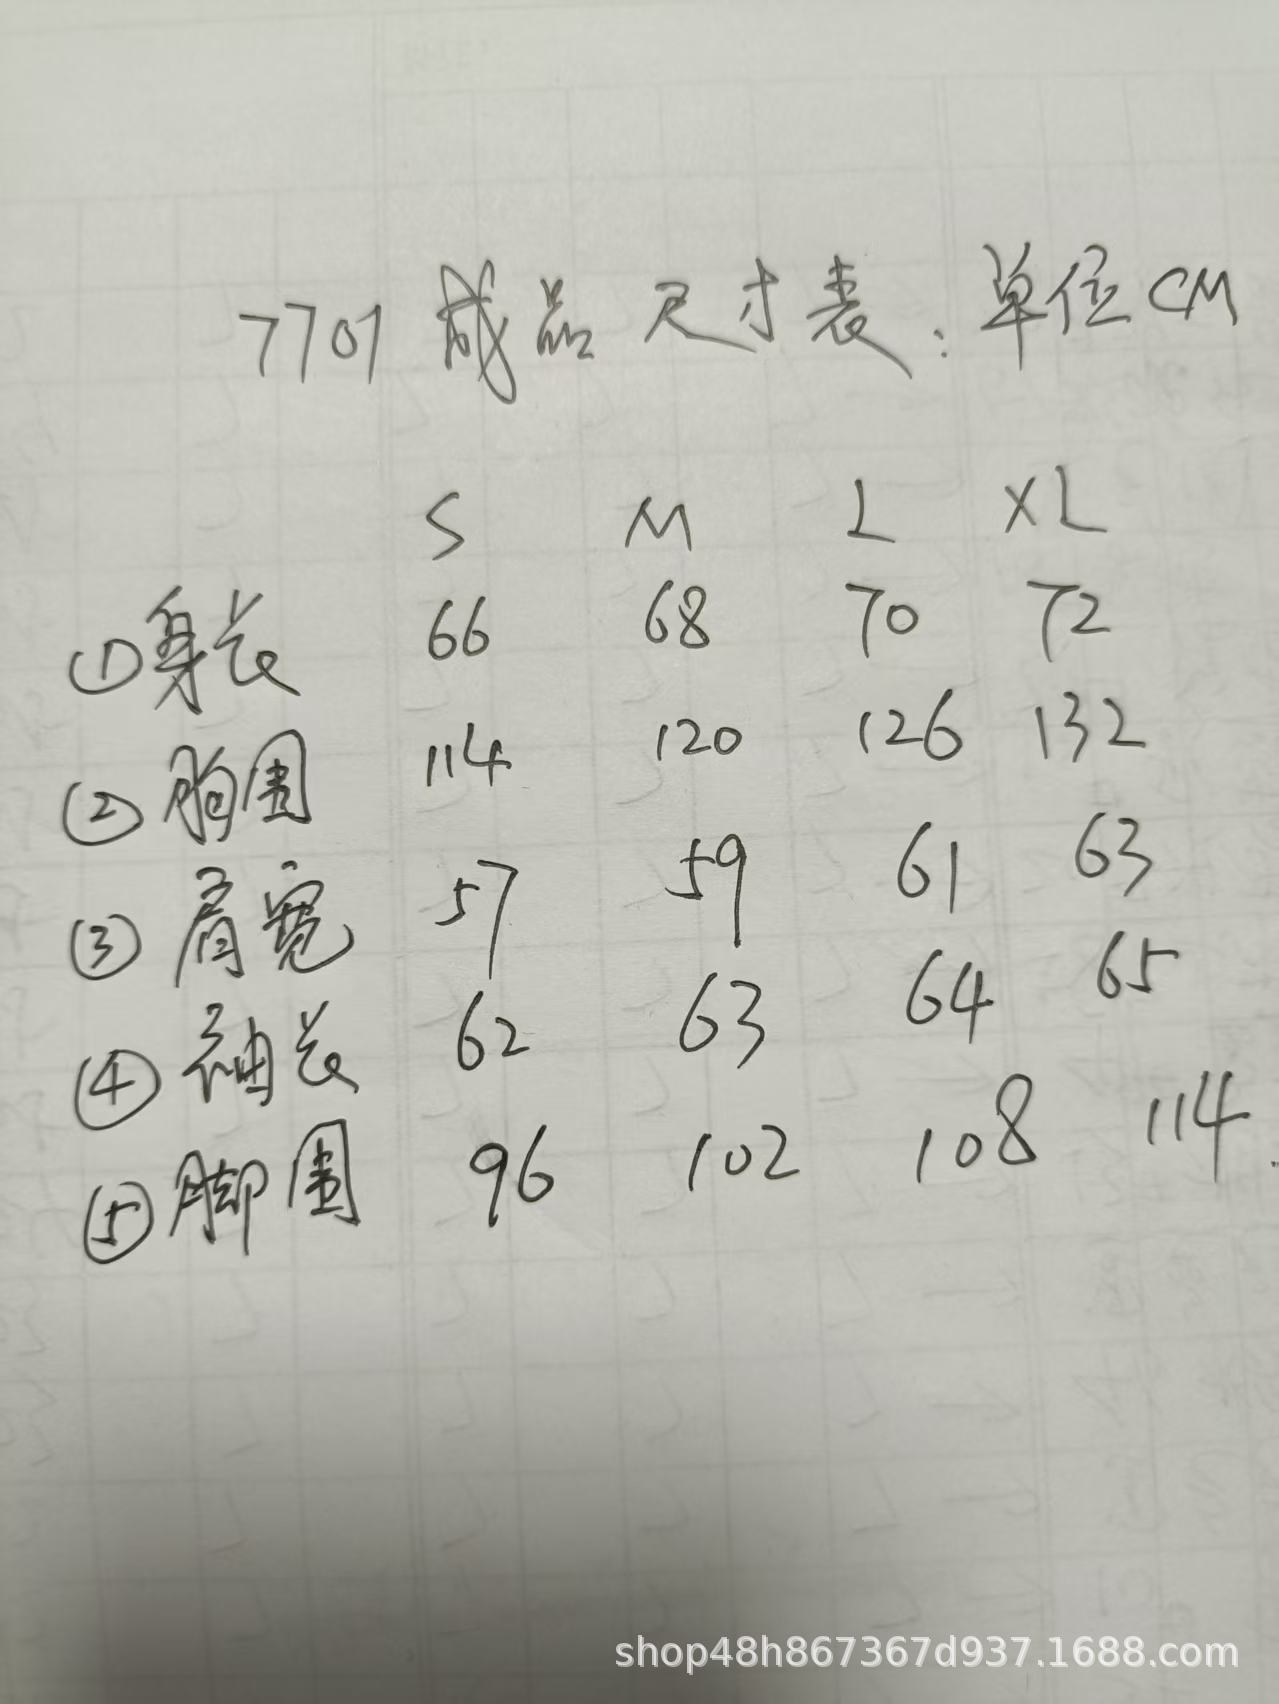 7701 成品尺寸表：单位CM
S M L XL
①身长 66 68 70 72
②胸围 114 120 126 132
③肩宽 57 59 61 63
④袖长 62 63 64 65
⑤脚围 96 102 108 114
shop48h867367d937.1688.com